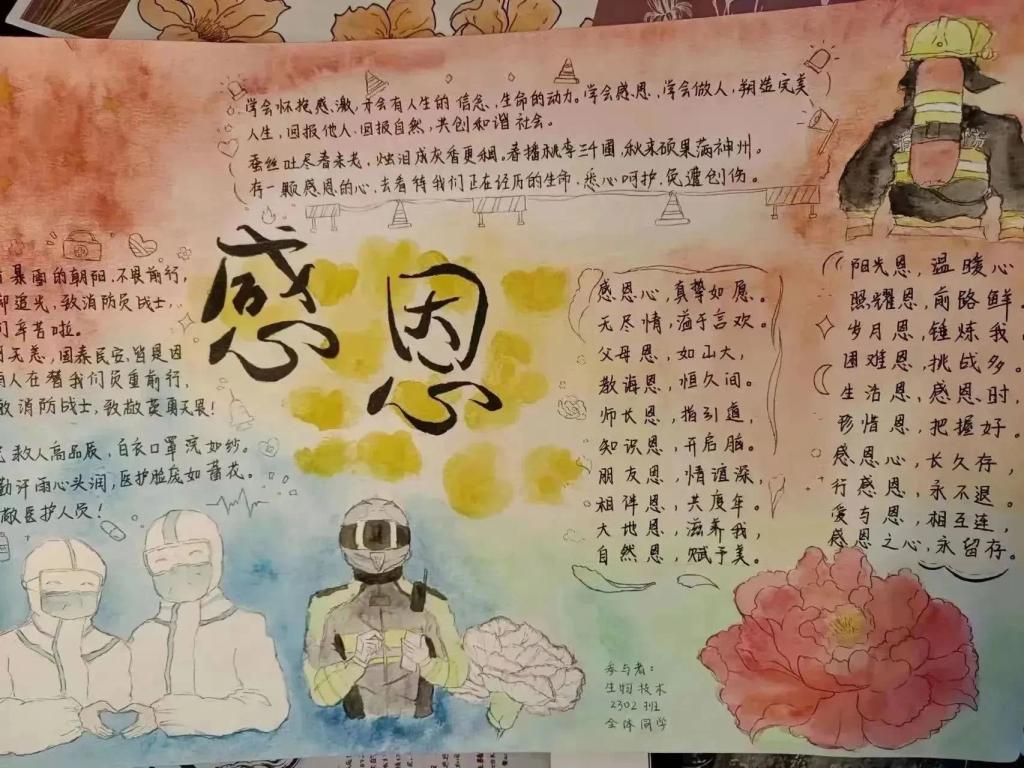 学会怀抱感激,才会有人生的信念,生命的动力。学会感恩,学会做人,塑造完美
人生,回报他人,回报自然,共创和谐社会。
蚕丝吐尽春未老,烛泪成灰香更稠。春播桃李三千圃,秋来硕果满神州。
存一颗感恩的心,去看待我们正在经历的生命,悉心呵护,免遭创伤。
感恩
暴雪的朝阳,不畏前行,
逆光,致消防员战士,
辛苦啦。
无恙,国泰民安,皆是因
有人在替我们负重前行,
致消防战士,致敬英勇无畏!
救人高品质,白衣口罩浣如纱。
勤汗雨心头润,医护脸庞如菡花。
致敬医护人员!
感恩心,真挚如愿。
无尽情,溢于言欢。
父母恩,如山大,
教诲恩,恒久间。
师长恩,指引道,
知识恩,开启脑。
朋友恩,情谊深,
相伴恩,共度年。
大地恩,滋养我,
自然恩,赋予美。
阳光恩,温暖心
照耀恩,前路鲜。
岁月恩,锤炼我,
困难恩,挑战多。
生活恩,感恩时,
珍惜恩,把握好。
感恩心,长久存,
行感恩,永不退。
爱与恩,相互连,
感恩之心,永留存。
参与者:
生物技术
2302班
全体同学